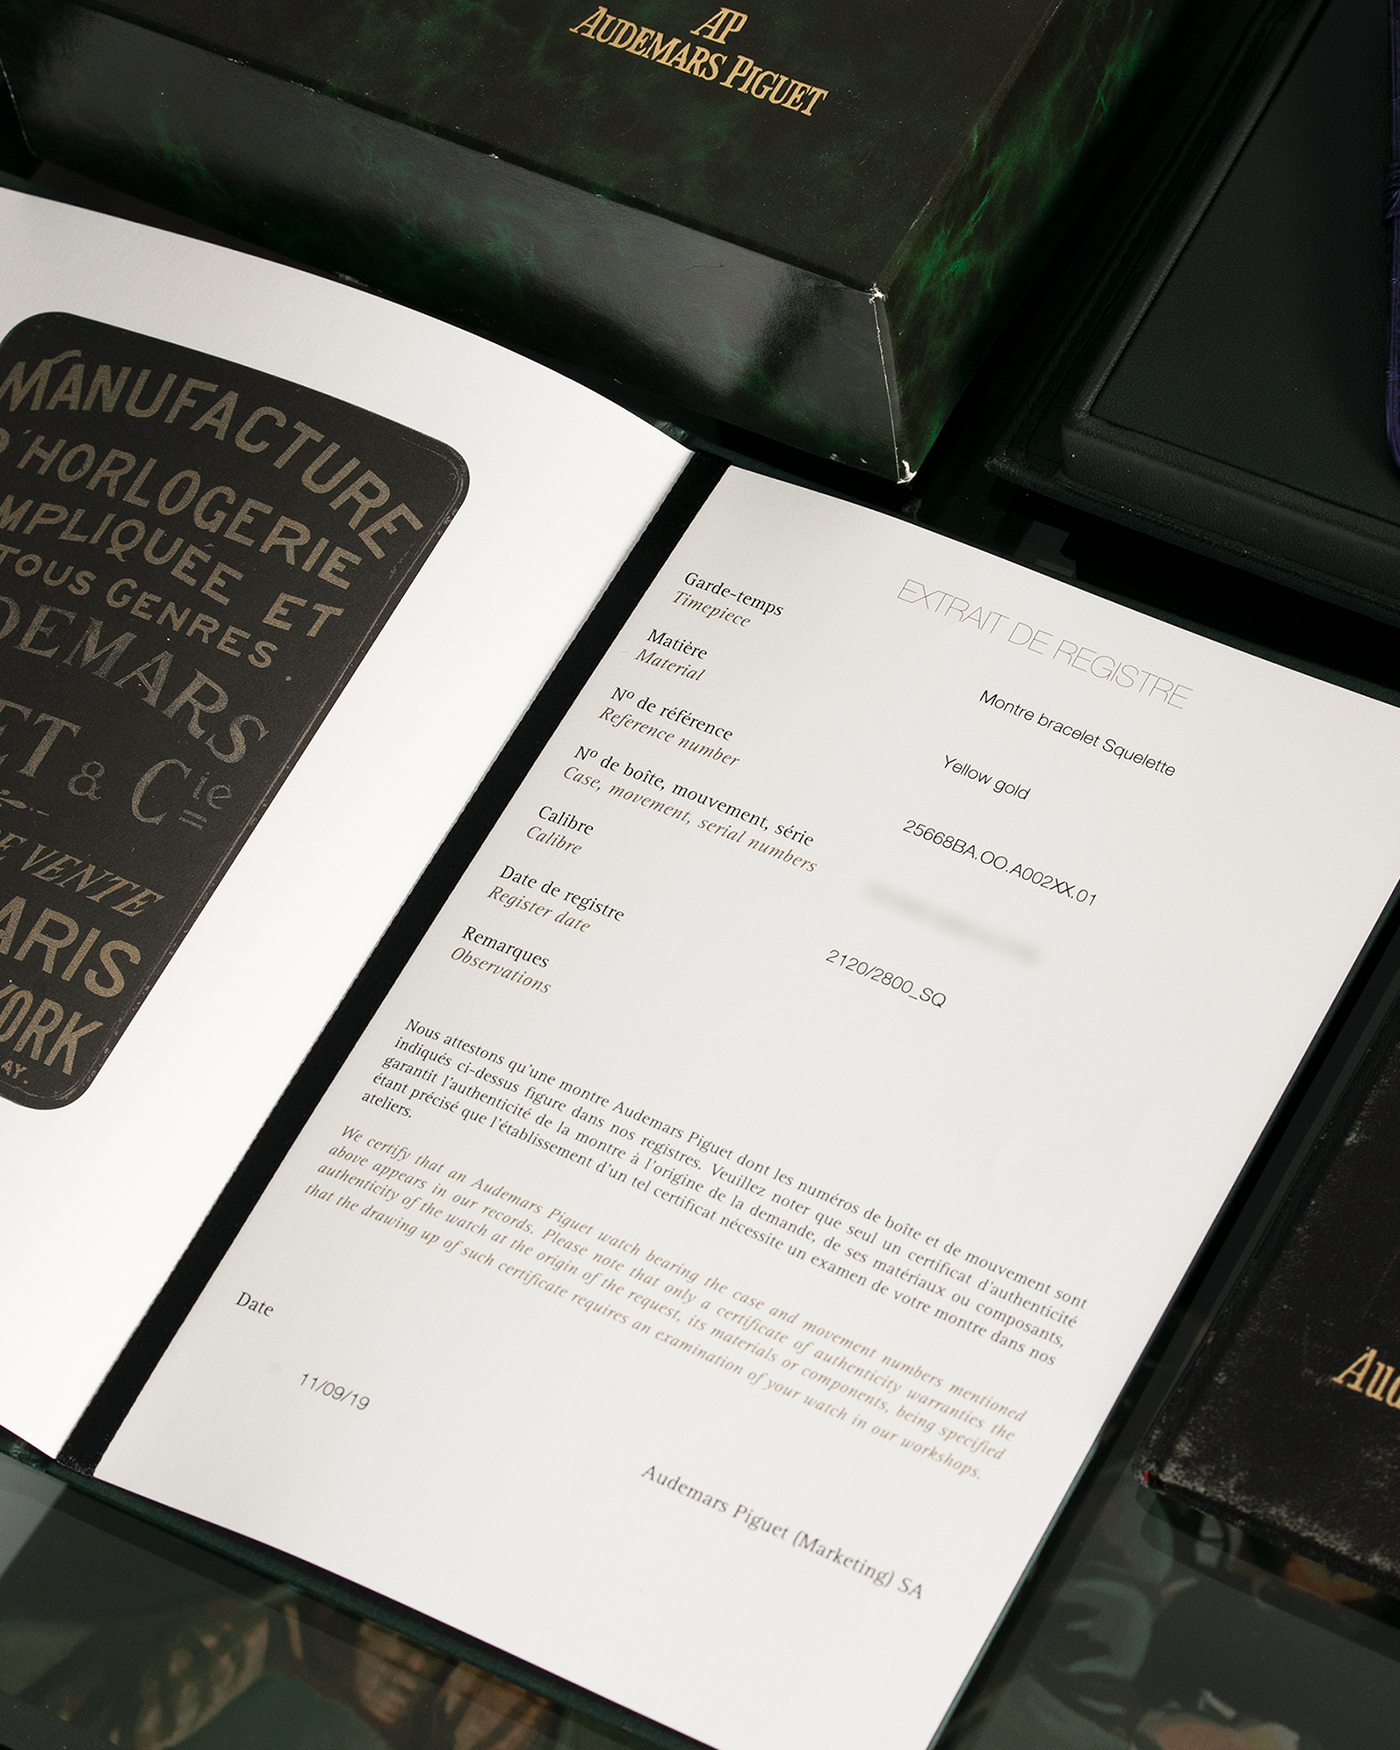 AP
AUDEMARS PIGUET
MANUFACTURE
D'HORLOGERIE
MPLIQUÉE ET
TOUS GENRES.
DEMARS
ET & Cie
E VENTE
ARIS
YORK
AY.
EXTRAIT DE REGISTRE
Garde-temps
Timepiece
Montre bracelet Squelette
Matière
Material
Yellow gold
Nº de référence
Reference number
25668BA.OO.A002XX.01
Nº de boîte, mouvement, série
Case, movement, serial numbers
Calibre
Calibre
2120/2800_SQ
Date de registre
Register date
Remarques
Observations
Nous attestons qu'une montre Audemars Piguet dont les numéros de boîte et de mouvement sont
indiqués ci-dessus figure dans nos registres. Veuillez noter que seul un certificat d'authenticité
garantit l'authenticité de la montre à l'origine de la demande, de ses matériaux ou composants,
étant précisé que l'établissement d'un tel certificat nécessite un examen de votre montre dans nos
ateliers.
We certify that an Audemars Piguet watch bearing the case and movement numbers mentioned
above appears in our records. Please note that only a certificate of authenticity warranties the
authenticity of the watch at the origin of the request, its materials or components, being specified
that the drawing up of such certificate requires an examination of your watch in our workshops.
Date
11/09/19
Audemars Piguet (Marketing) SA
Aud